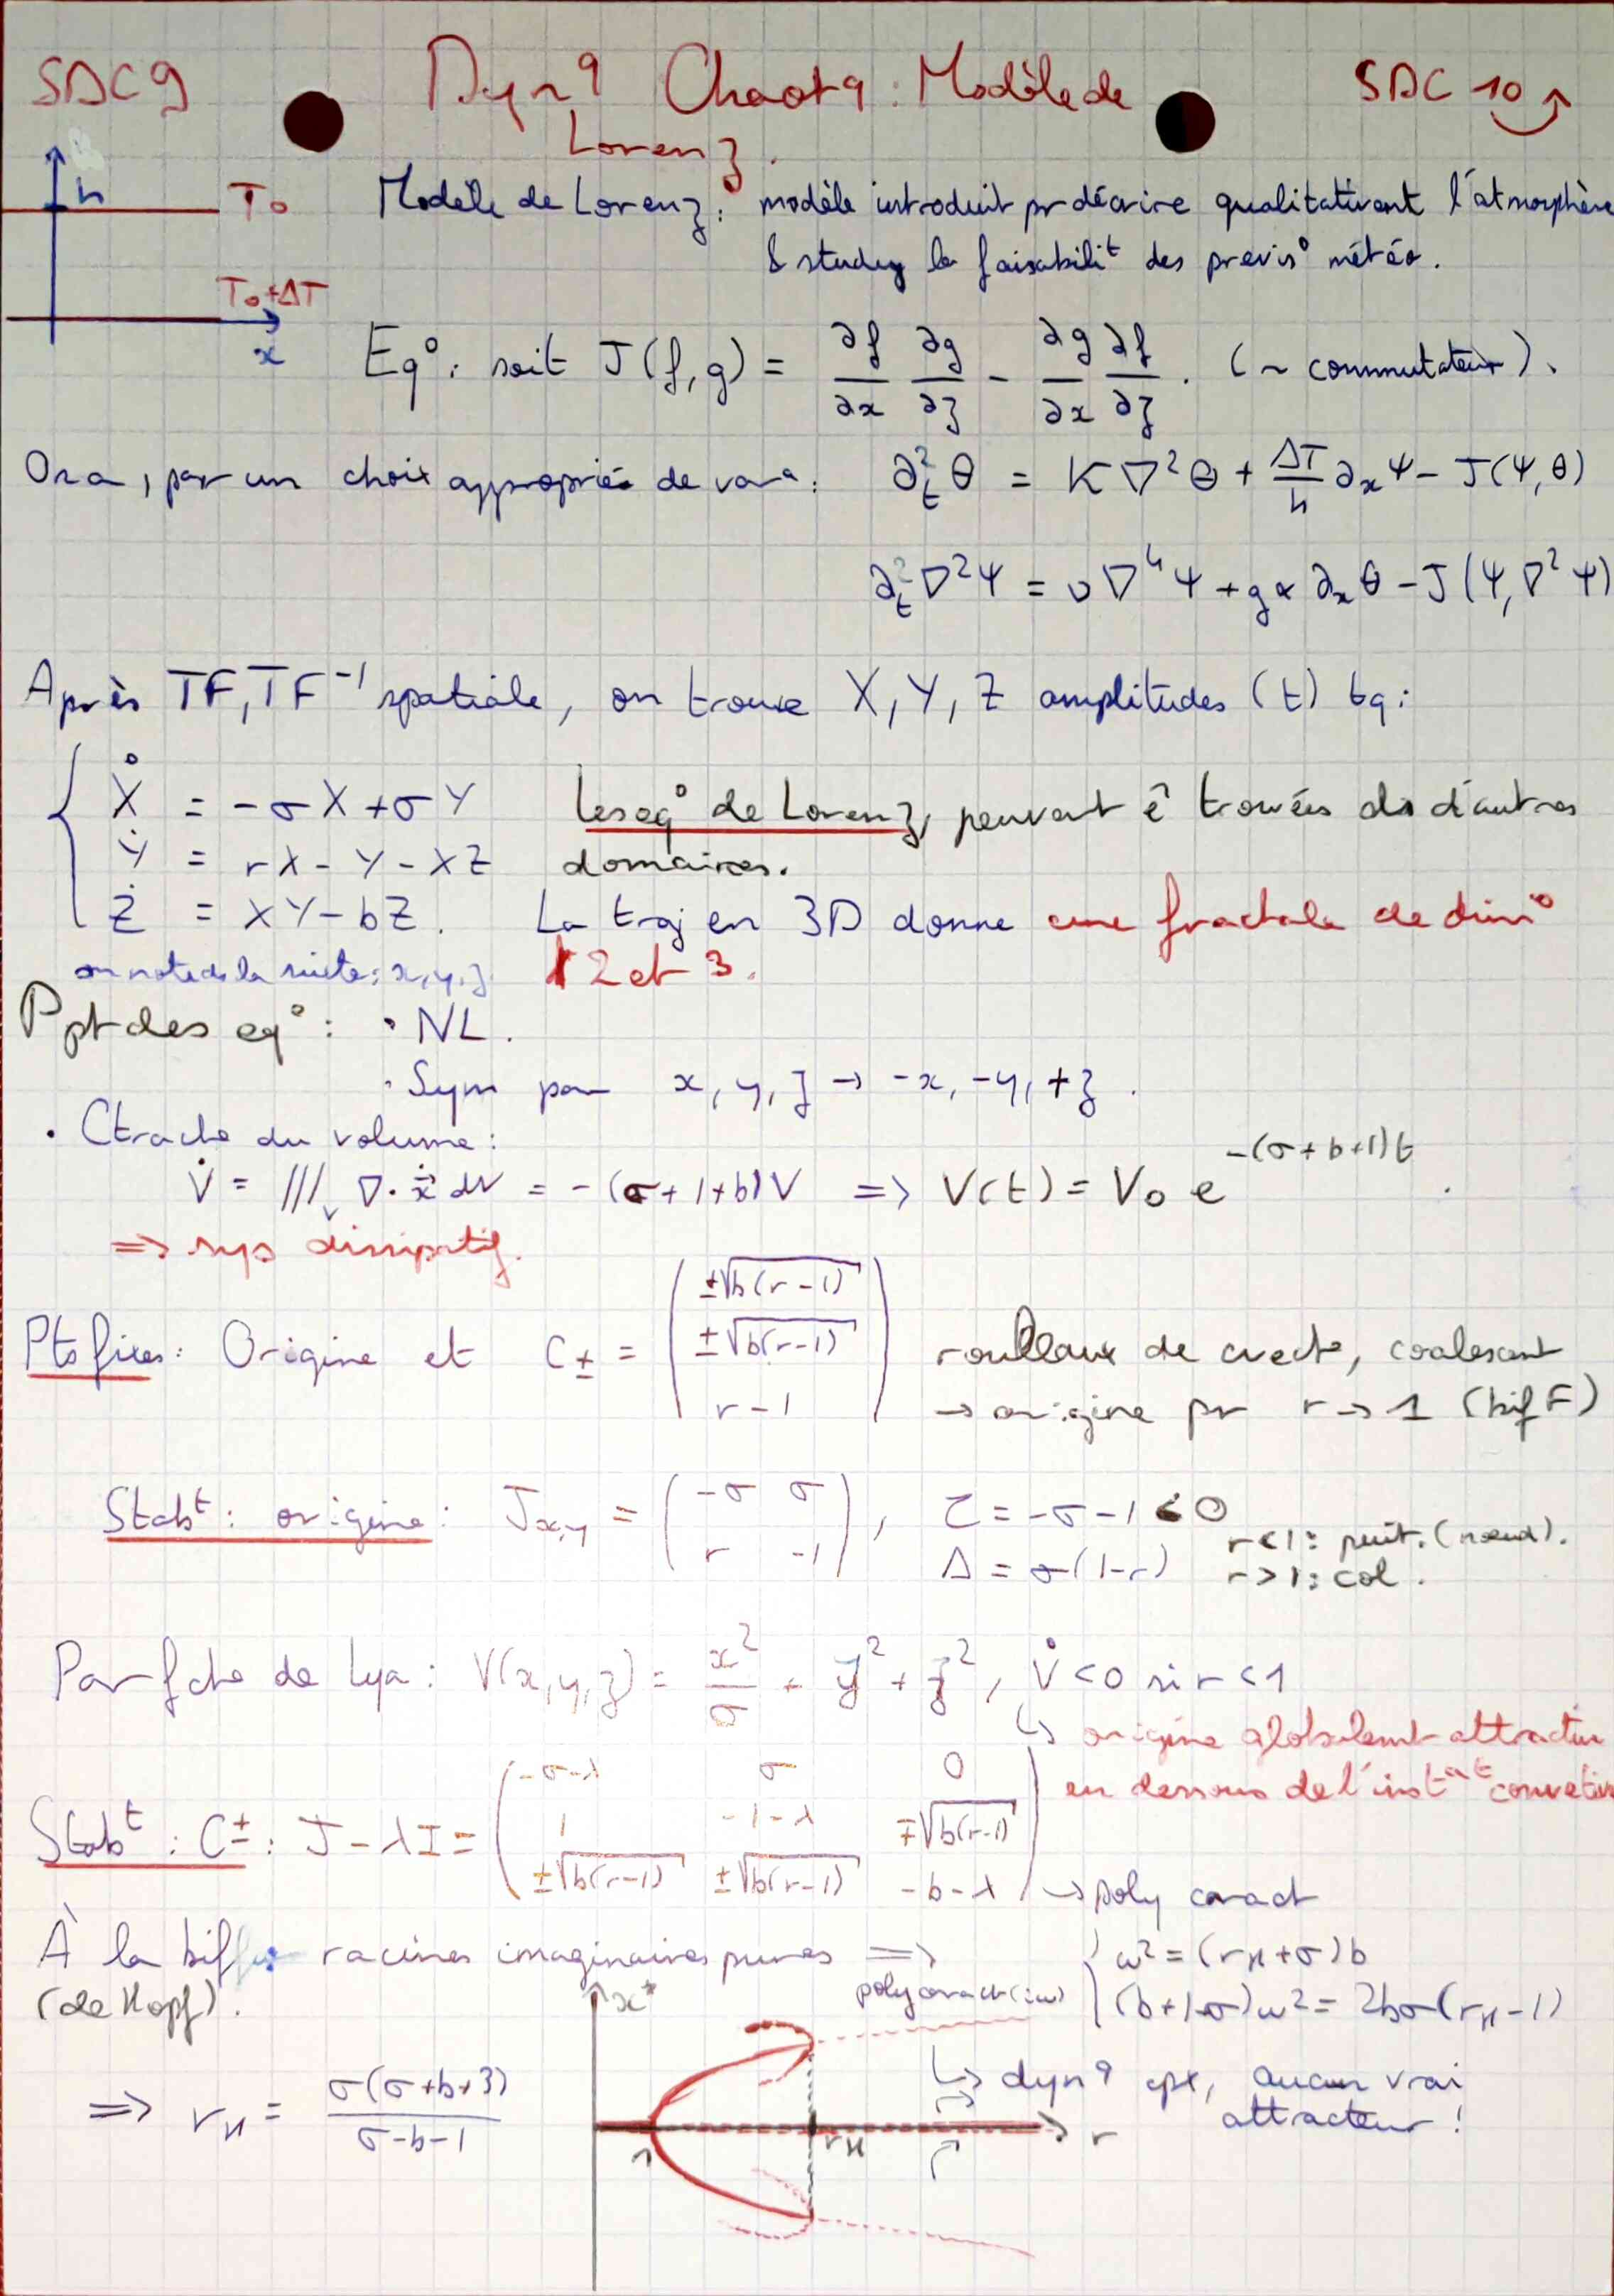 SDC9 Dyn q Chaot q : Modèle de SDC 10
Lorenz.
h T₀ Modèle de Lorenz : modèle introduit pr décrire qualitativent l'atmosphère
& study la faisabilit^t des previs° météo.
T₀+ΔT
x Eq° : soit J(f,g) = ∂f/∂x ∂g/∂z - ∂g/∂x ∂f/∂z. (~ commutateur).
On a, par un choix approprié de var^a : ∂²_t θ = K∇²θ + ΔT/h ∂_x Ψ - J(Ψ,θ)
∂²_t ∇²Ψ = ν∇⁴Ψ + gα ∂_x θ - J(Ψ,∇²Ψ)
Après TF, TF⁻¹ spatiale, on trouve X, Y, Z amplitudes (t) tq :
Ẋ = -σX + σY Les eq° de Lorenz, peuvent ê trouvées ds d'autres
Ẏ = rX - Y - XZ domaines.
Ż = XY - bZ. La traj en 3D donne une fractale de dim°
on note ds la suite : x,y,z 2 et 3.
Ppt des eq° : • NL.
• Sym par x, y, z → -x, -y, +z.
• Ctracte du volume :
V̇ = ∭_V ∇·ẋ dV = -(σ+1+b)V => V(t) = V₀ e^{-(σ+b+1)t}.
=> sys dissipatif.
Pts fixes : Origine et C± = ( ±√b(r-1) ; ±√b(r-1) ; r-1 ) roulleaux de cvecto, coalescent
→ origine pr r → 1 (bif F)
Stab^t : origine : J_{x,y} = ( -σ σ ; r -1 ), τ = -σ-1 < 0
Δ = σ(1-r) r<1 : puit. (nœud).
r>1 : col.
Par fcto de Lya : V(x,y,z) = x²/σ + y² + z², V̇ < 0 si r < 1
↳ origine globalemt attractive
en dessous de l'inst^at convective
Stab^t : C± : J - λI = ( -σ-λ σ 0 ; 1 -1-λ ∓√b(r-1) ; ±√b(r-1) ±√b(r-1) -b-λ ) → poly caract
À la biff racines imaginaires pures => ω² = (r_H+σ)b
(de Hopf). poly caract(iω) (b+1+σ)ω² = 2bσ(r_H-1)
x*
=> r_H = σ(σ+b+3)/σ-b-1 ↳ dyn q cpx, aucun vrai
attracteur !
1 r_H r